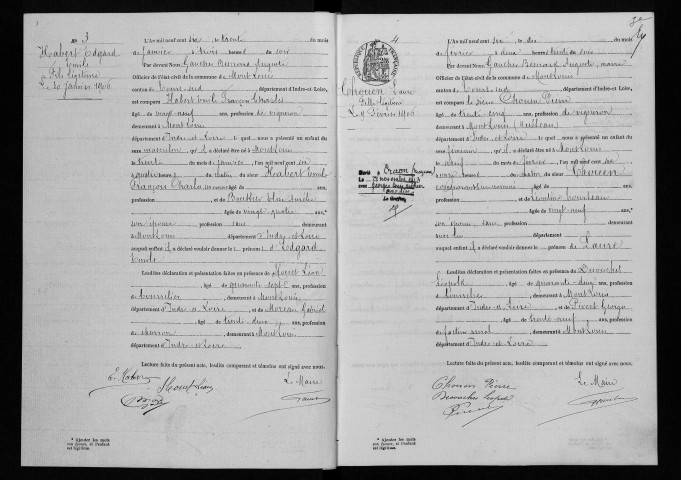 N° 3
Habert Edgard
Emile
Fils légitime
Le 30 Janvier 1906
L'An mil neuf cent six le trente du mois
de janvier à trois heures du soir
Par devant Nous Gaucher Bernard Auguste
Officier de l'état civil de la commune de Mont Louis
canton de Tours-sud département d'Indre-et-Loire,
est comparu Habert Emile François Charles
âgé de vingt neuf ans, profession de vigneron
demeurant à Mont Louis
département d'Indre et Loire lequel nous a présenté un enfant du
sexe masculin qu'il a déclaré être né à Mont Louis
le trente du mois de janvier, l'an mil neuf cent six
à quatre heures du matin de Habert Emile
François Charles
et de
âgée de vingt quatre ans,*
son épouse profession sans demeurant à
Mont Louis département d'Indre et Loire
auquel enfant il a déclaré vouloir donner le prénom d'Edgard
Emile
Lesdites déclaration et présentation faites en présence de Houet Léon
âgé de quarante sept ans, profession
de bourrelier, demeurant à Mont Louis
département d'Indre et Loire, et de Moreau Gabriel
âgé de trente deux ans, profession
de charron demeurant à Mont Louis
département d'Indre-et-Loire
Lecture faite du présent acte, lesdits comparant et témoins ont signé avec nous.
E. Habert
Houet Léon
Le Maire
* Ajouter les mots
son épouse, si l'enfant
est légitime.
4
RÉPUBLIQUE FRANÇAISE
Chouen Laure
Fille légitime
Le 9 Février 1906
Marié à
Le
Le Greffier,
L'An mil neuf cent six le dix du mois
de février à deux heures trente du soir
Par devant Nous Gaucher Bernard Auguste, maire
Officier de l'état civil de la commune de Mont Louis
canton de Tours sud département d'Indre-et-Loire,
est comparu le sieur Chouen Pierre
âgé de trente cinq ans, profession de vigneron
demeurant à Mont Louis
département d'Indre et Loire lequel nous a présenté un enfant du
sexe féminin qu'il a déclaré être né à Mont Louis
le neuf du mois de février, l'an mil neuf cent six
à heures du matin de Chouen
comparant
et de
âgée de vingt neuf ans,*
son épouse sans profession demeurant
avec lui département
auquel enfant il a déclaré vouloir donner le prénom de Laure
Lesdites déclaration et présentation faites en présence de
Léopold âgé de quarante-deux ans, profession
de bourrelier, demeurant à Mont Louis
département d'Indre-et-Loire et de
âgé de trente neuf ans, profession
de facteur rural demeurant à Mont Louis
département d'Indre et Loire
Lecture faite du présent acte, lesdits comparant et témoins ont signé avec nous.
Chouen Pierre
Le Maire
* Ajouter les mots
son épouse, si l'enfant
est légitime.